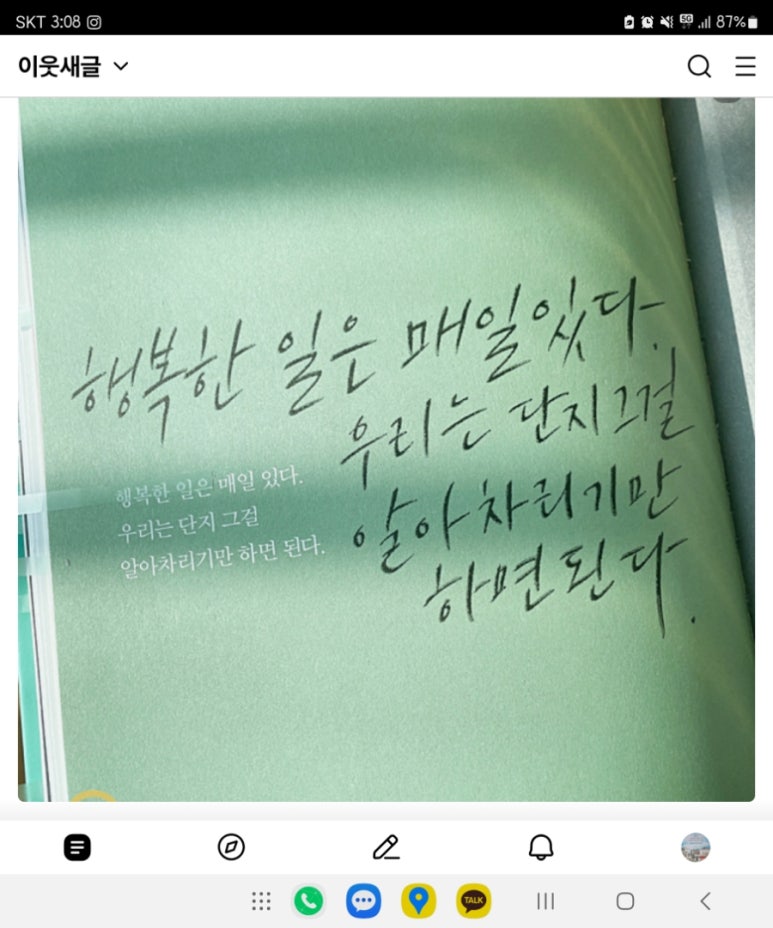 SKT 3:08
5G
87%
이웃새글
행복한 일은 매일있다.
우리는 단지 그걸
알아차리기만
하면 된다.
행복한 일은 매일 있다.
우리는 단지 그걸
알아차리기만 하면 된다.
TALK